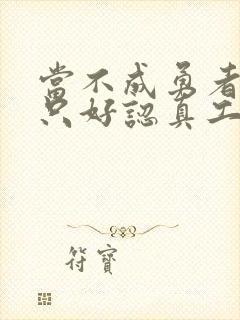 當不成勇者
只好認真工
符寶